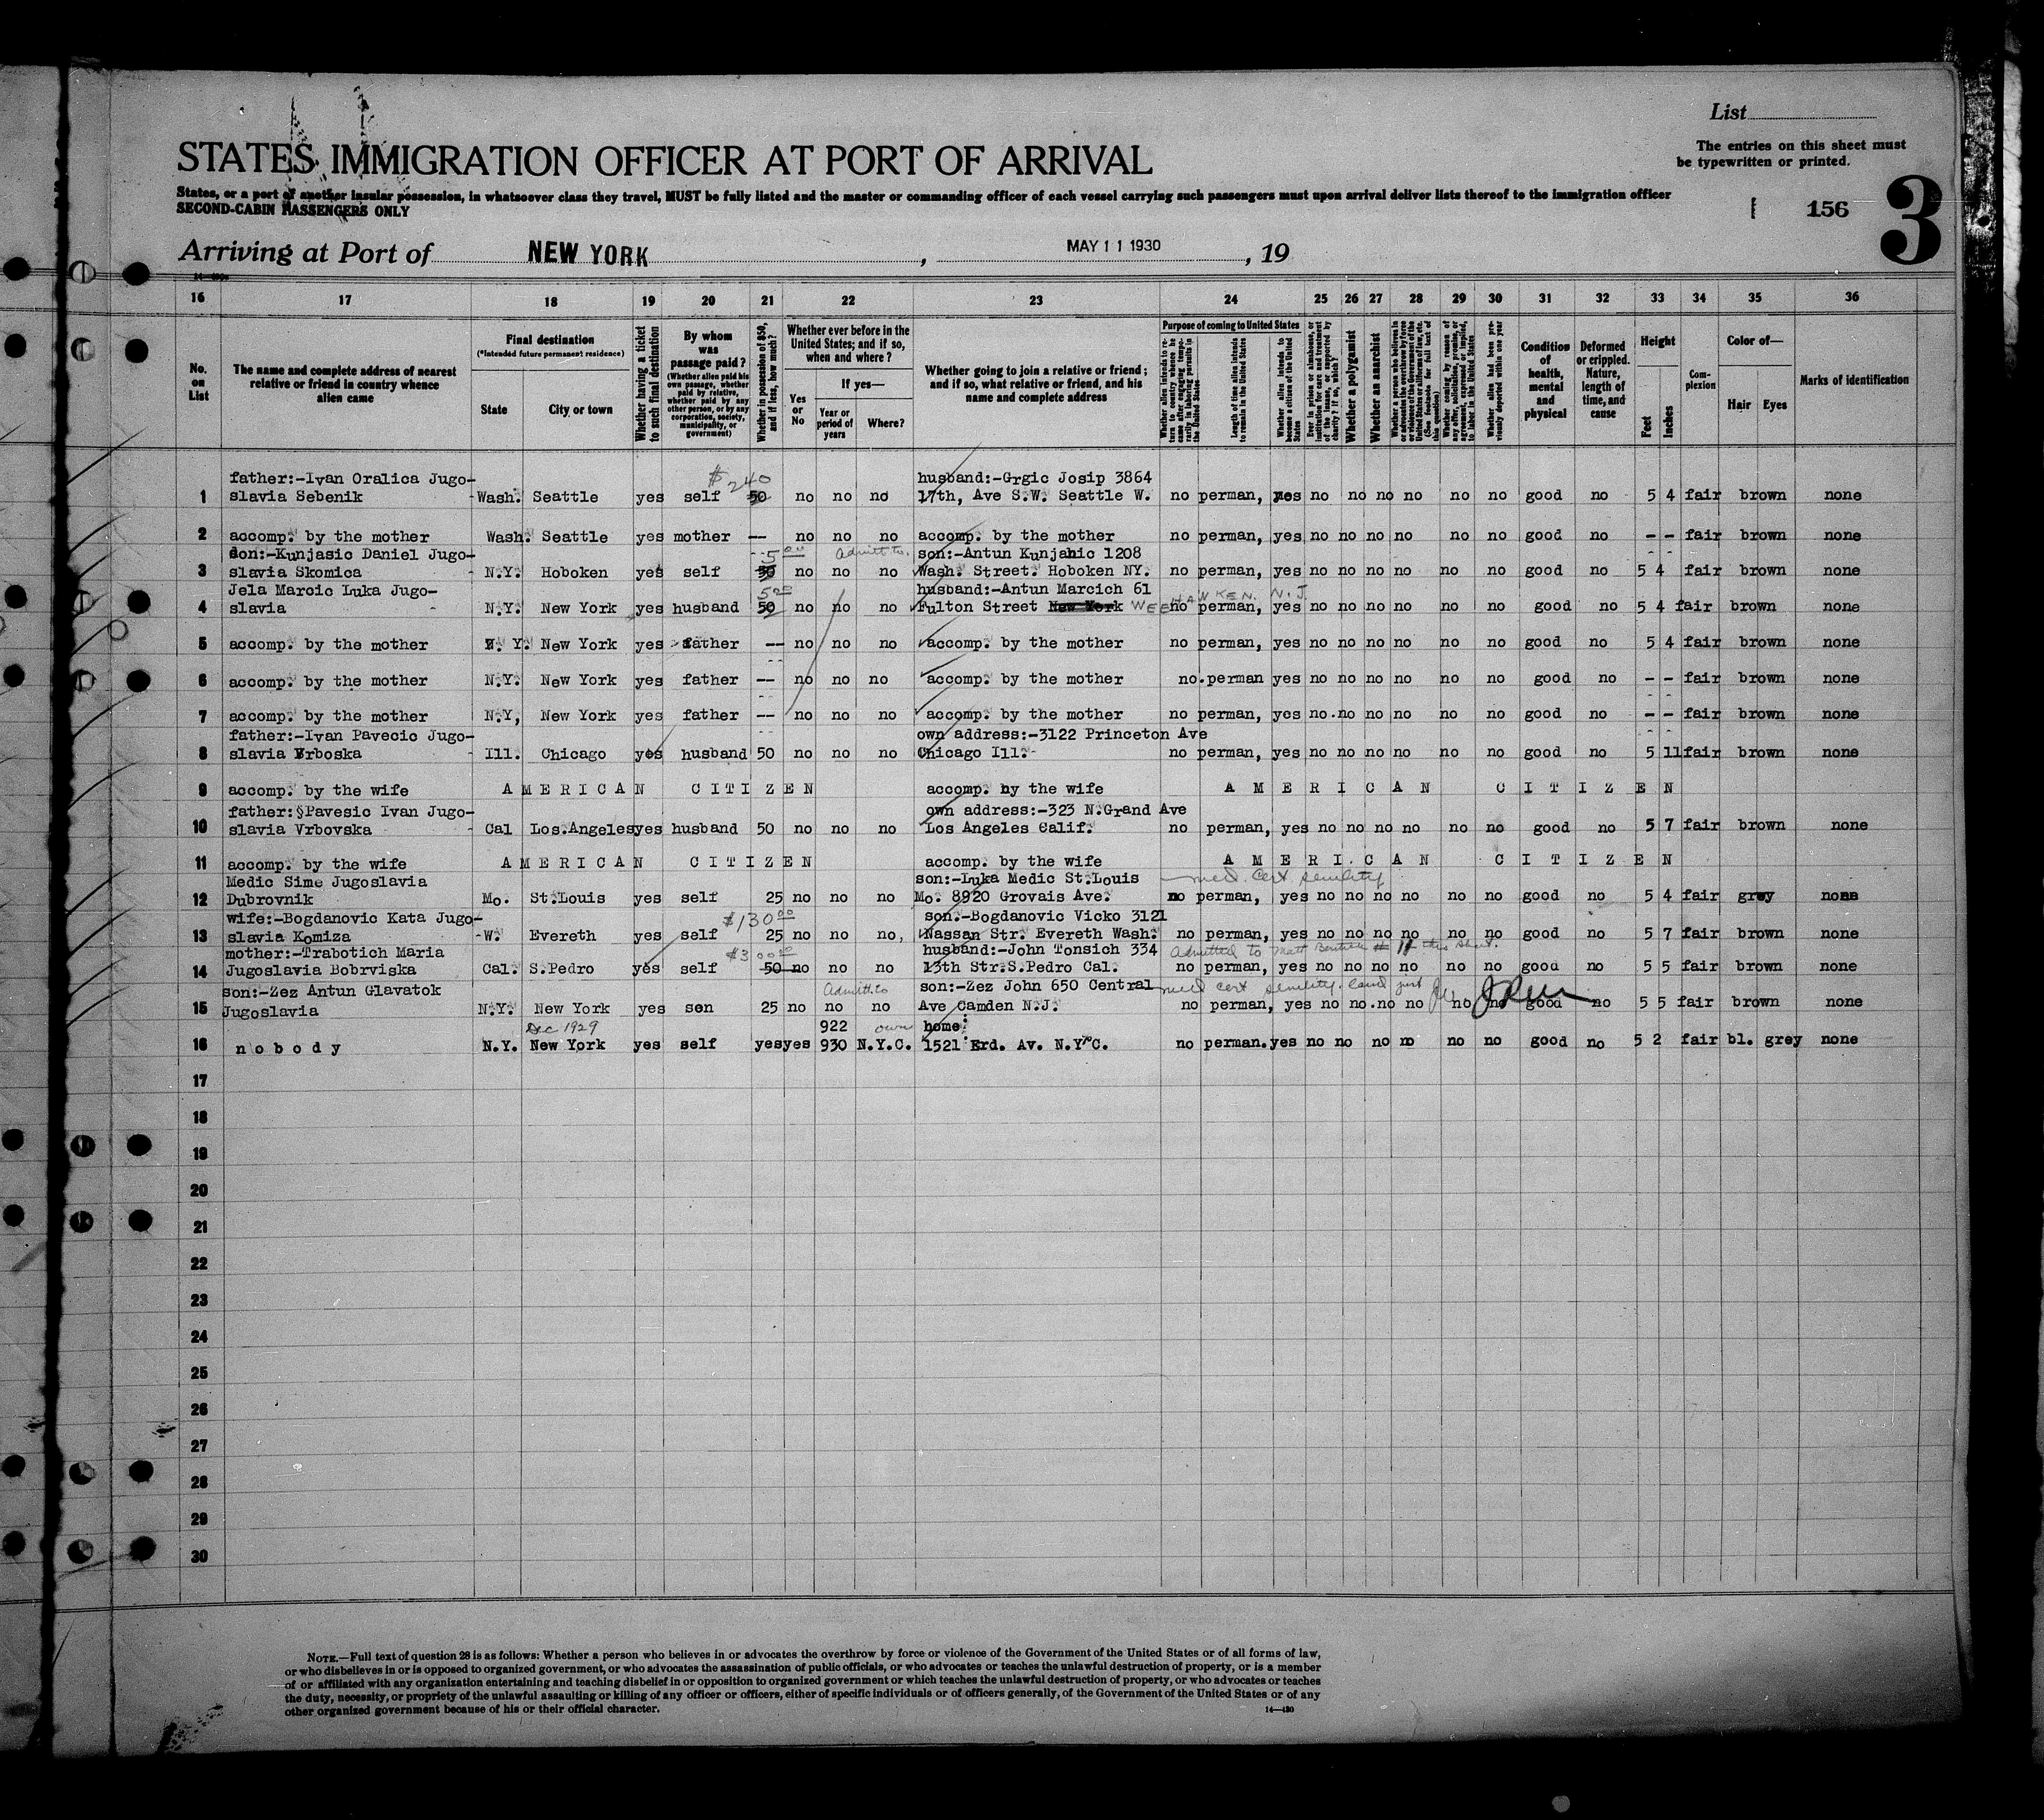 List
STATES IMMIGRATION OFFICER AT PORT OF ARRIVAL
The entries on this sheet must
be typewritten or printed.
States, or a port of another insular possession, in whatsoever class they travel, MUST be fully listed and the master or commanding officer of each vessel carrying such passengers must upon arrival deliver lists thereof to the immigration officer
SECOND-CABIN PASSENGERS ONLY
156
3
Arriving at Port of NEW YORK, MAY 11 1930, 19
16 17 18 19 20 21 22 23 24 25 26 27 28 29 30 31 32 33 34 35 36
No. on List
The name and complete address of nearest relative or friend in country whence alien came
Final destination
(*Intended future permanent residence)
State
City or town
Whether having a ticket to such final destination
By whom was passage paid?
(Whether alien paid his own passage, whether paid by relative, whether paid by any other person, or by any corporation, society, municipality, or government)
Whether in possession of $50, and if less, how much?
Whether ever before in the United States; and if so, when and where?
Yes or No
If yes—
Year or period of years
Where?
Whether going to join a relative or friend; and if so, what relative or friend, and his name and complete address
Purpose of coming to United States
Whether alien intends to return to country whence he came after engaging temporarily in laboring pursuits in the United States
Length of time alien intends to remain in the United States
Whether alien intends to become a citizen of the United States
Ever in prison or almshouse, or institution for care and treatment of the insane, or supported by charity? If so, which?
Whether a polygamist
Whether an anarchist
Whether a person who believes in or advocates the overthrow by force or violence of the Government of the United States or all forms of law, etc. (See footnote for full text of this question)
Whether coming by reason of any offer, solicitation, promise, or agreement, expressed or implied, to labor in the United States
Whether alien had been previously deported within one year
Condition of health, mental and physical
Deformed or crippled. Nature, length of time, and cause
Height
Feet
Inches
Complexion
Color of—
Hair
Eyes
Marks of identification
father:-Ivan Oralica Jugo- $240 husband:-Grgic Josip 3864
1 slavia Sebenik Wash. Seattle yes self 50 no no no 17th, Ave S.W. Seattle W. no perman, yes no no no no no no good no 5 4 fair brown none
2 accomp. by the mother Wash. Seattle yes mother -- no no no accomp. by the mother no perman, yes no no no no no no good no - - fair brown none
son:-Kunjasic Daniel Jugo- 5 00 Admit to. son:-Antun Kunjahic 1208
3 slavia Skomica N.Y. Hoboken yes self 50 no no no Wash. Street. Hoboken NY. no perman, yes no no no no no no good no 5 4 fair brown none
Jela Marcic Luka Jugo- 5 00 husband:-Antun Marcich 61
4 slavia N.Y. New York yes husband 50 no no no Fulton Street New York WEEHAWKEN. N.J. no perman, yes no no no no no no good no 5 4 fair brown none
5 accomp. by the mother N. Y. New York yes father -- no no no accomp. by the mother no perman, yes no no no no no no good no 5 4 fair brown none
6 accomp. by the mother N.Y. New York yes father -- no no no accomp. by the mother no.perman yes no no no no no no good no - - fair brown none
7 accomp. by the mother N.Y, New York yes father -- no no no accomp. by the mother no perman, yes no.no no no no no good no - - fair brown none
father:-Ivan Pavecic Jugo- own address:-3122 Princeton Ave
8 slavia Vrboska Ill. Chicago yes husband 50 no no no Chicago Ill. no perman, yes no no no no no no good no 5 11 fair brown none
9 accomp. by the wife A M E R I C A N C I T I Z E N accomp. by the wife A M E R I C A N C I T I Z E N
father:§Pavesic Ivan Jugo- own address:-323 N.Grand Ave
10 slavia Vrbovska Cal Los.Angeles yes husband 50 no no no Los Angeles Calif. no perman, yes no no no no no no good no 5 7 fair brown none
11 accomp. by the wife A M E R I C A N C I T I Z E N accomp. by the wife A M E R I. C A N C I T I Z E N
Medic Sime Jugoslavia son:-Luka Medic St.Louis med. Cert senility
12 Dubrovnik Mo. St.Louis yes self 25 no no no Mo. 8920 Grovais Ave. no perman, yes no no no no no no good no 5 4 fair grey none
wife:-Bogdanovic Kata Jugo- $130 00 son.-Bogdanovic Vicko 3121
13 slavia Komiza W. Evereth yes self 25 no no no, Nassan Str. Evereth Wash. no perman, yes no no no no no no good no 5 7 fair brown none
mother:-Trabotich Maria $300 00 husband:-John Tonsich 334 Admitted to Matt # 11 this sheet.
14 Jugoslavia Bobrviska Cal. S.Pedro yes self 50 no no no 13th Str.S.Pedro Cal. no perman, yes no no no no no no good no 5 5 fair brown none
son:-Zez Antun Glavatok Admit to son:-Zez John 650 Central med cert senility.
15 Jugoslavia N.Y. New York yes son 25 no no no Ave Camden N.J. no perman, yes no no.no no no no good no 5 5 fair brown none
Dec 1929 922 own home:
16 n o b o d y N.Y. New York yes self yes yes 930 N.Y.C. 1521 Erd. Av. N.Y.C. no perman. yes no no no no no no good no 5 2 fair bl. grey none
17
18
19
20
21
22
23
24
25
26
27
28
29
30
NOTE.—Full text of question 28 is as follows: Whether a person who believes in or advocates the overthrow by force or violence of the Government of the United States or of all forms of law,
or who disbelieves in or is opposed to organized government, or who advocates the assassination of public officials, or who advocates or teaches the unlawful destruction of property, or is a member
of or affiliated with any organization entertaining and teaching disbelief in or opposition to organized government or which teaches the unlawful destruction of property, or who advocates or teaches
the duty, necessity, or propriety of the unlawful assaulting or killing of any officer or officers, either of specific individuals or of officers generally, of the Government of the United States or of any
other organized government because of his or their official character.
14—430